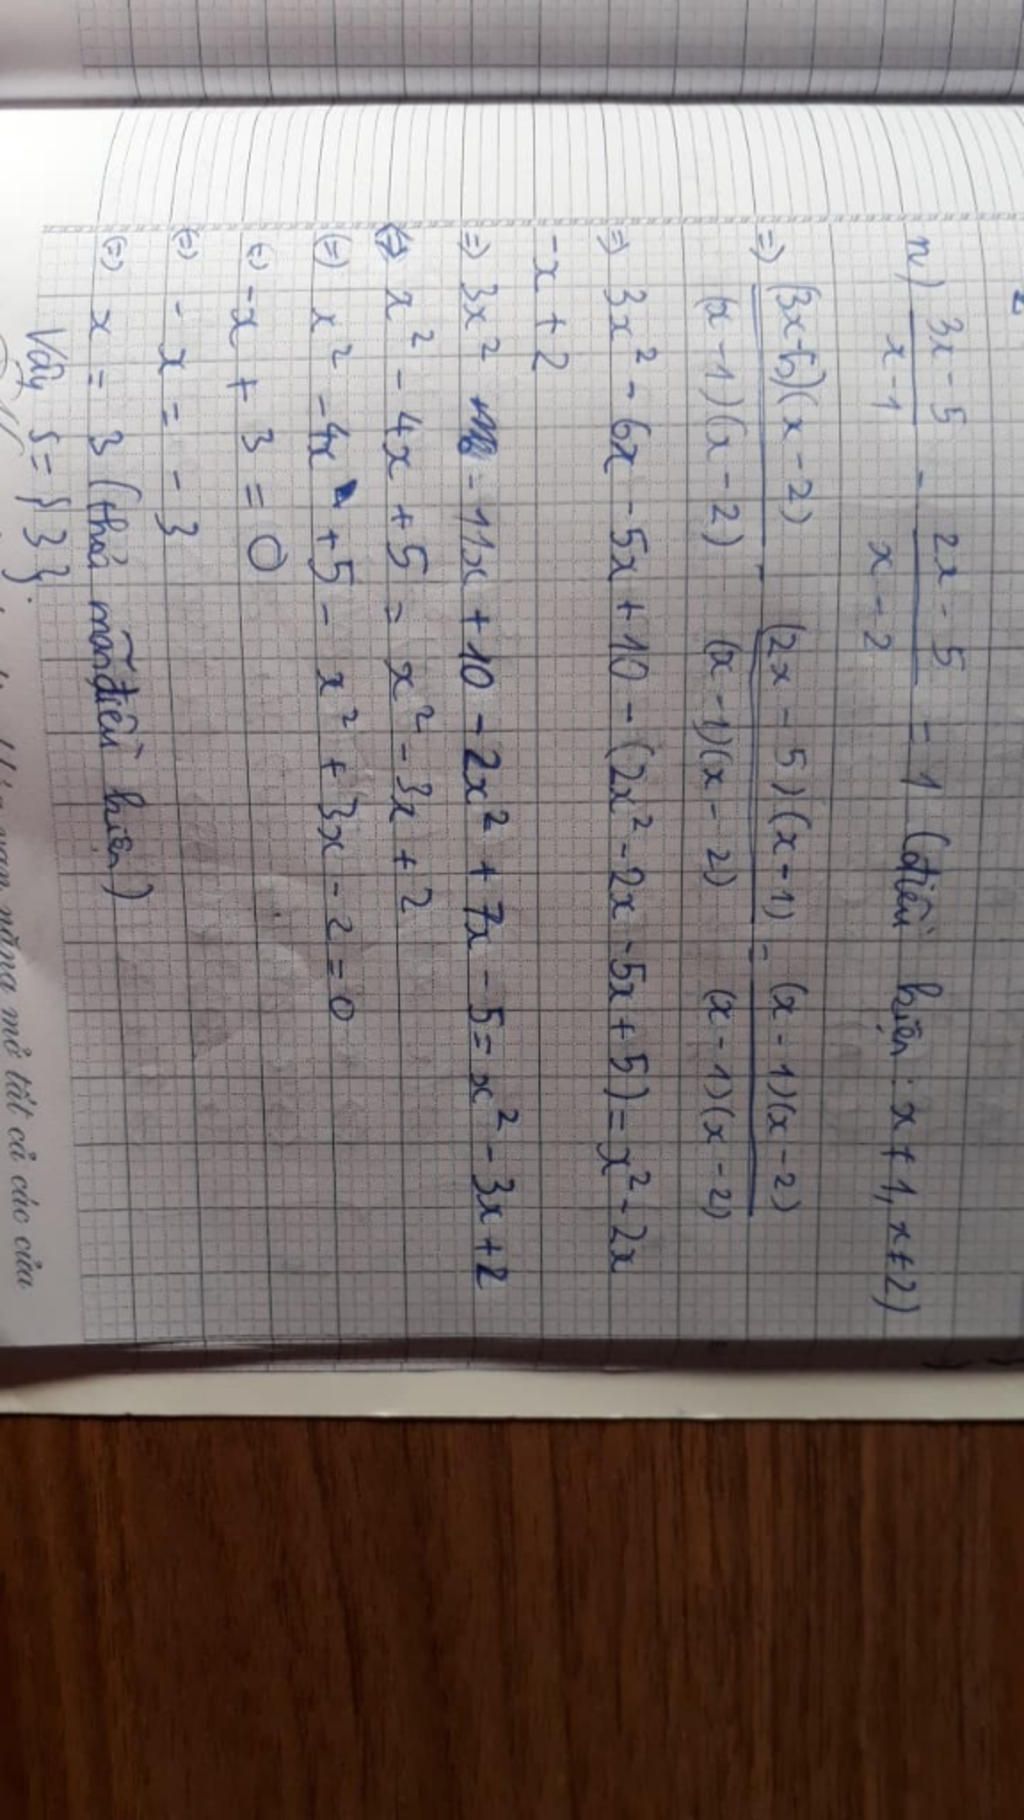 n) \frac{3x-5}{x-1} - \frac{2x-5}{x-2} = 1 (điều kiện: x ≠ 1, x ≠ 2)
=) \frac{(3x-5)(x-2)}{(x-1)(x-2)} - \frac{(2x-5)(x-1)}{(x-1)(x-2)} = \frac{(x-1)(x-2)}{(x-1)(x-2)}
=) 3x² - 6x - 5x + 10 - (2x² - 2x - 5x + 5) = x² - 2x
-x + 2
=) 3x² - 11x + 10 - 2x² + 7x - 5 = x² - 3x + 2
(=) x² - 4x + 5 = x² - 3x + 2
(=) x² - 4x + 5 - x² + 3x - 2 = 0
(=) -x + 3 = 0
(=) -x = -3
(=) x = 3 (thoả mãn điều kiện)
Vậy S = {3}.
năng mở tất cả các cửa